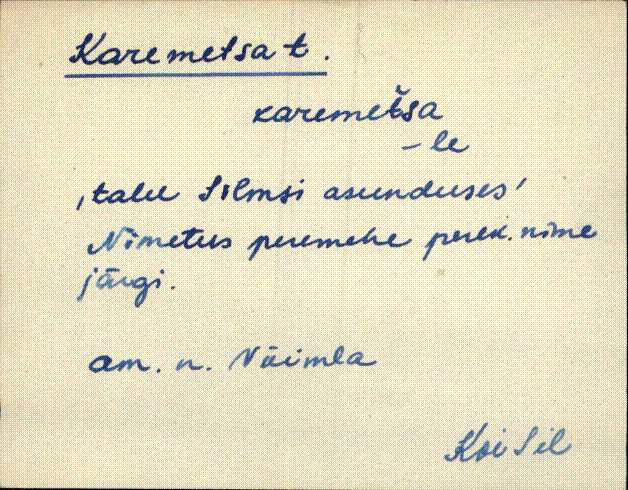 Karemetsa t.
karemetša
– le
‚talu Silmsi asunduses’
Nimetus peremehe perek. nime
järgi.
am. n. Võimla
Koi Sil